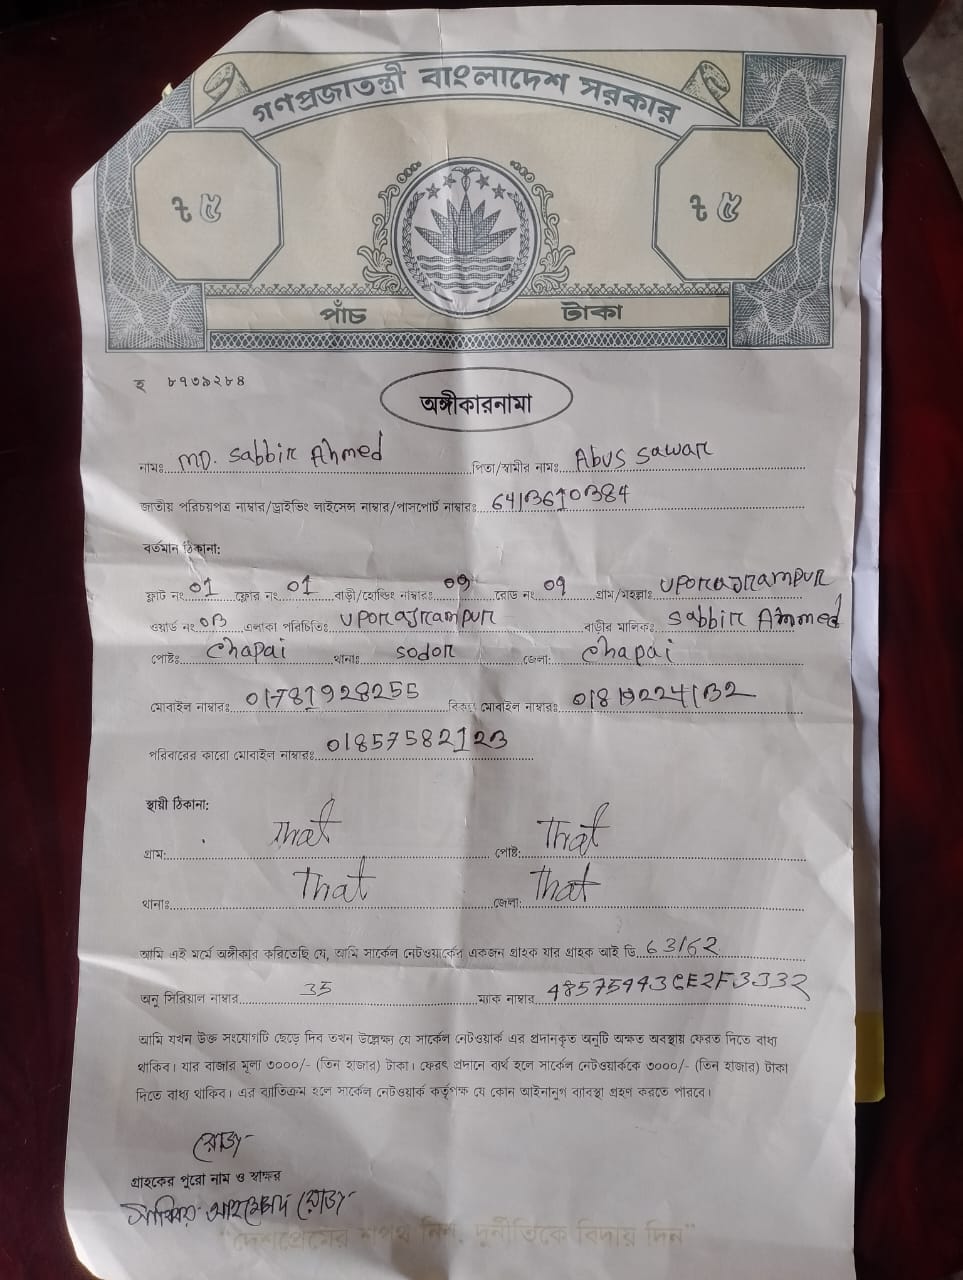 গণপ্রজাতন্ত্রী বাংলাদেশ সরকার
৳ ৫ ৳ ৫
পাঁচ টাকা
হ ৮৭৩৯২৮৪
অঙ্গীকারনামা
নামঃ MD. Sabbir Ahmed পিতা/স্বামীর নামঃ Abus Sawar
জাতীয় পরিচয়পত্র নাম্বার/ড্রাইভিং লাইসেন্স নাম্বার/পাসপোর্ট নাম্বারঃ 6413610384
বর্তমান ঠিকানা:
ফ্লাট নং 01 ফ্লোর নং 01 বাড়ী/হোল্ডিং নাম্বারঃ 09 রোড নং 09 গ্রাম/মহল্লাঃ Uporajrampur
ওয়ার্ড নং 03 এলাকা পরিচিতিঃ Uporajrampur বাড়ীর মালিকঃ Sabbir Ahmed
পোষ্টঃ Chapai থানাঃ Sodor জেলা: Chapai
মোবাইল নাম্বারঃ 01781928255 বিকল্প মোবাইল নাম্বারঃ 01819224132
পরিবারের কারো মোবাইল নাম্বারঃ 01857582123
স্থায়ী ঠিকানা:
গ্রাম: That পোষ্ট: That
থানাঃ That জেলা: That
আমি এই মর্মে অঙ্গীকার করিতেছি যে, আমি সার্কেল নেটওয়ার্কের একজন গ্রাহক যার গ্রাহক আই ডি 63162
অনু সিরিয়াল নাম্বার 35 ম্যাক নাম্বার
আমি যখন উক্ত সংযোগটি ছেড়ে দিব তখন উল্লেক্ষ্য যে সার্কেল নেটওয়ার্ক এর প্রদানকৃত অনুটি অক্ষত অবস্থায় ফেরত দিতে বাধ্য
থাকিব। যার বাজার মূল্য ৩০০০/- (তিন হাজার) টাকা। ফেরৎ প্রদানে ব্যর্থ হলে সার্কেল নেটওয়ার্ককে ৩০০০/- (তিন হাজার) টাকা
দিতে বাধ্য থাকিব। এর ব্যাতিক্রম হলে সার্কেল নেটওয়ার্ক কর্তৃপক্ষ যে কোন আইনানুগ ব্যাবস্থা গ্রহণ করতে পারবে।
রোজ
গ্রাহকের পুরো নাম ও স্বাক্ষর
সাব্বির আহম্মেদ রোজ
"দেশপ্রেমের শপথ নিন, দুর্নীতিকে বিদায় দিন"